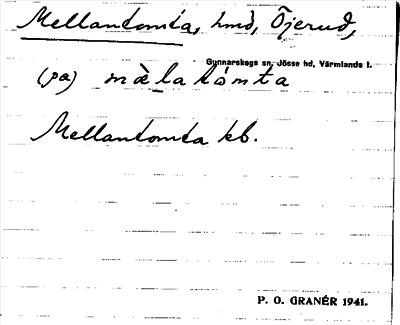 Mellantomta, hmd, Öjerud,
Gunnarskogs sn, Jösse hd, Värmlands l.
(pa) màlatómta
Mellantomta kb.
P. O. GRANÉR 1941.